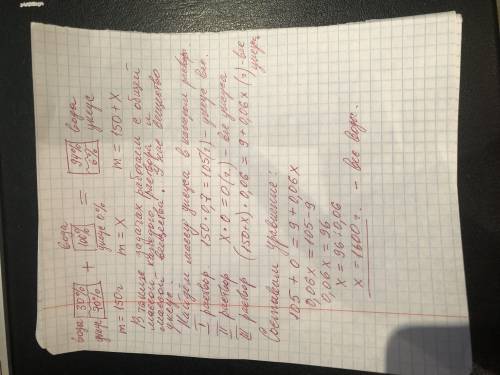 вода 30% + вода 100% = 94% вода
уксус 70% уксус 0% 6% уксус
m = 150г m = X m = 150 + X
В такие задачах работаем с общей
массой каждого раствора и
массой вещества. У нас вещество
уксус.
Найдём массу уксуса в каждом раствор
I раствор 150 · 0,7 = 105(г) – уксуса все.
II раствор X · 0 = 0(г.) – все уксуса
III раствор (150+X) · 0,06 = 9 + 0,06X (г) – все
уксуса
Составим уравнение:
105 + 0 = 9 + 0,06X
0,06X = 105 - 9
0,06X = 96
X = 96 : 0,06
X = 1600 г. – все воды.